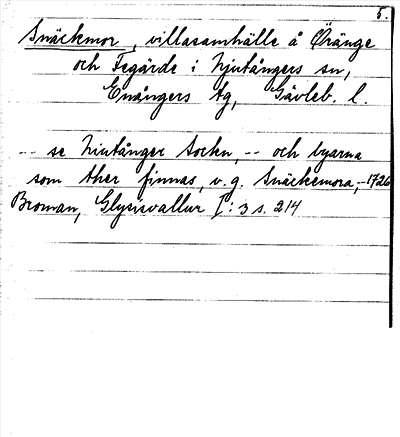 5.
Snäckmor, villasamhälle å Öränge
och Tegärde i Njutångers sn,
Enångers tg, Gävleb. l.
-- se Niutånger Sockn, -- och byarna
som ther finnas, v. g. Snäckemora, -- 1726
Broman, Glysisvallur I: 3 s. 214